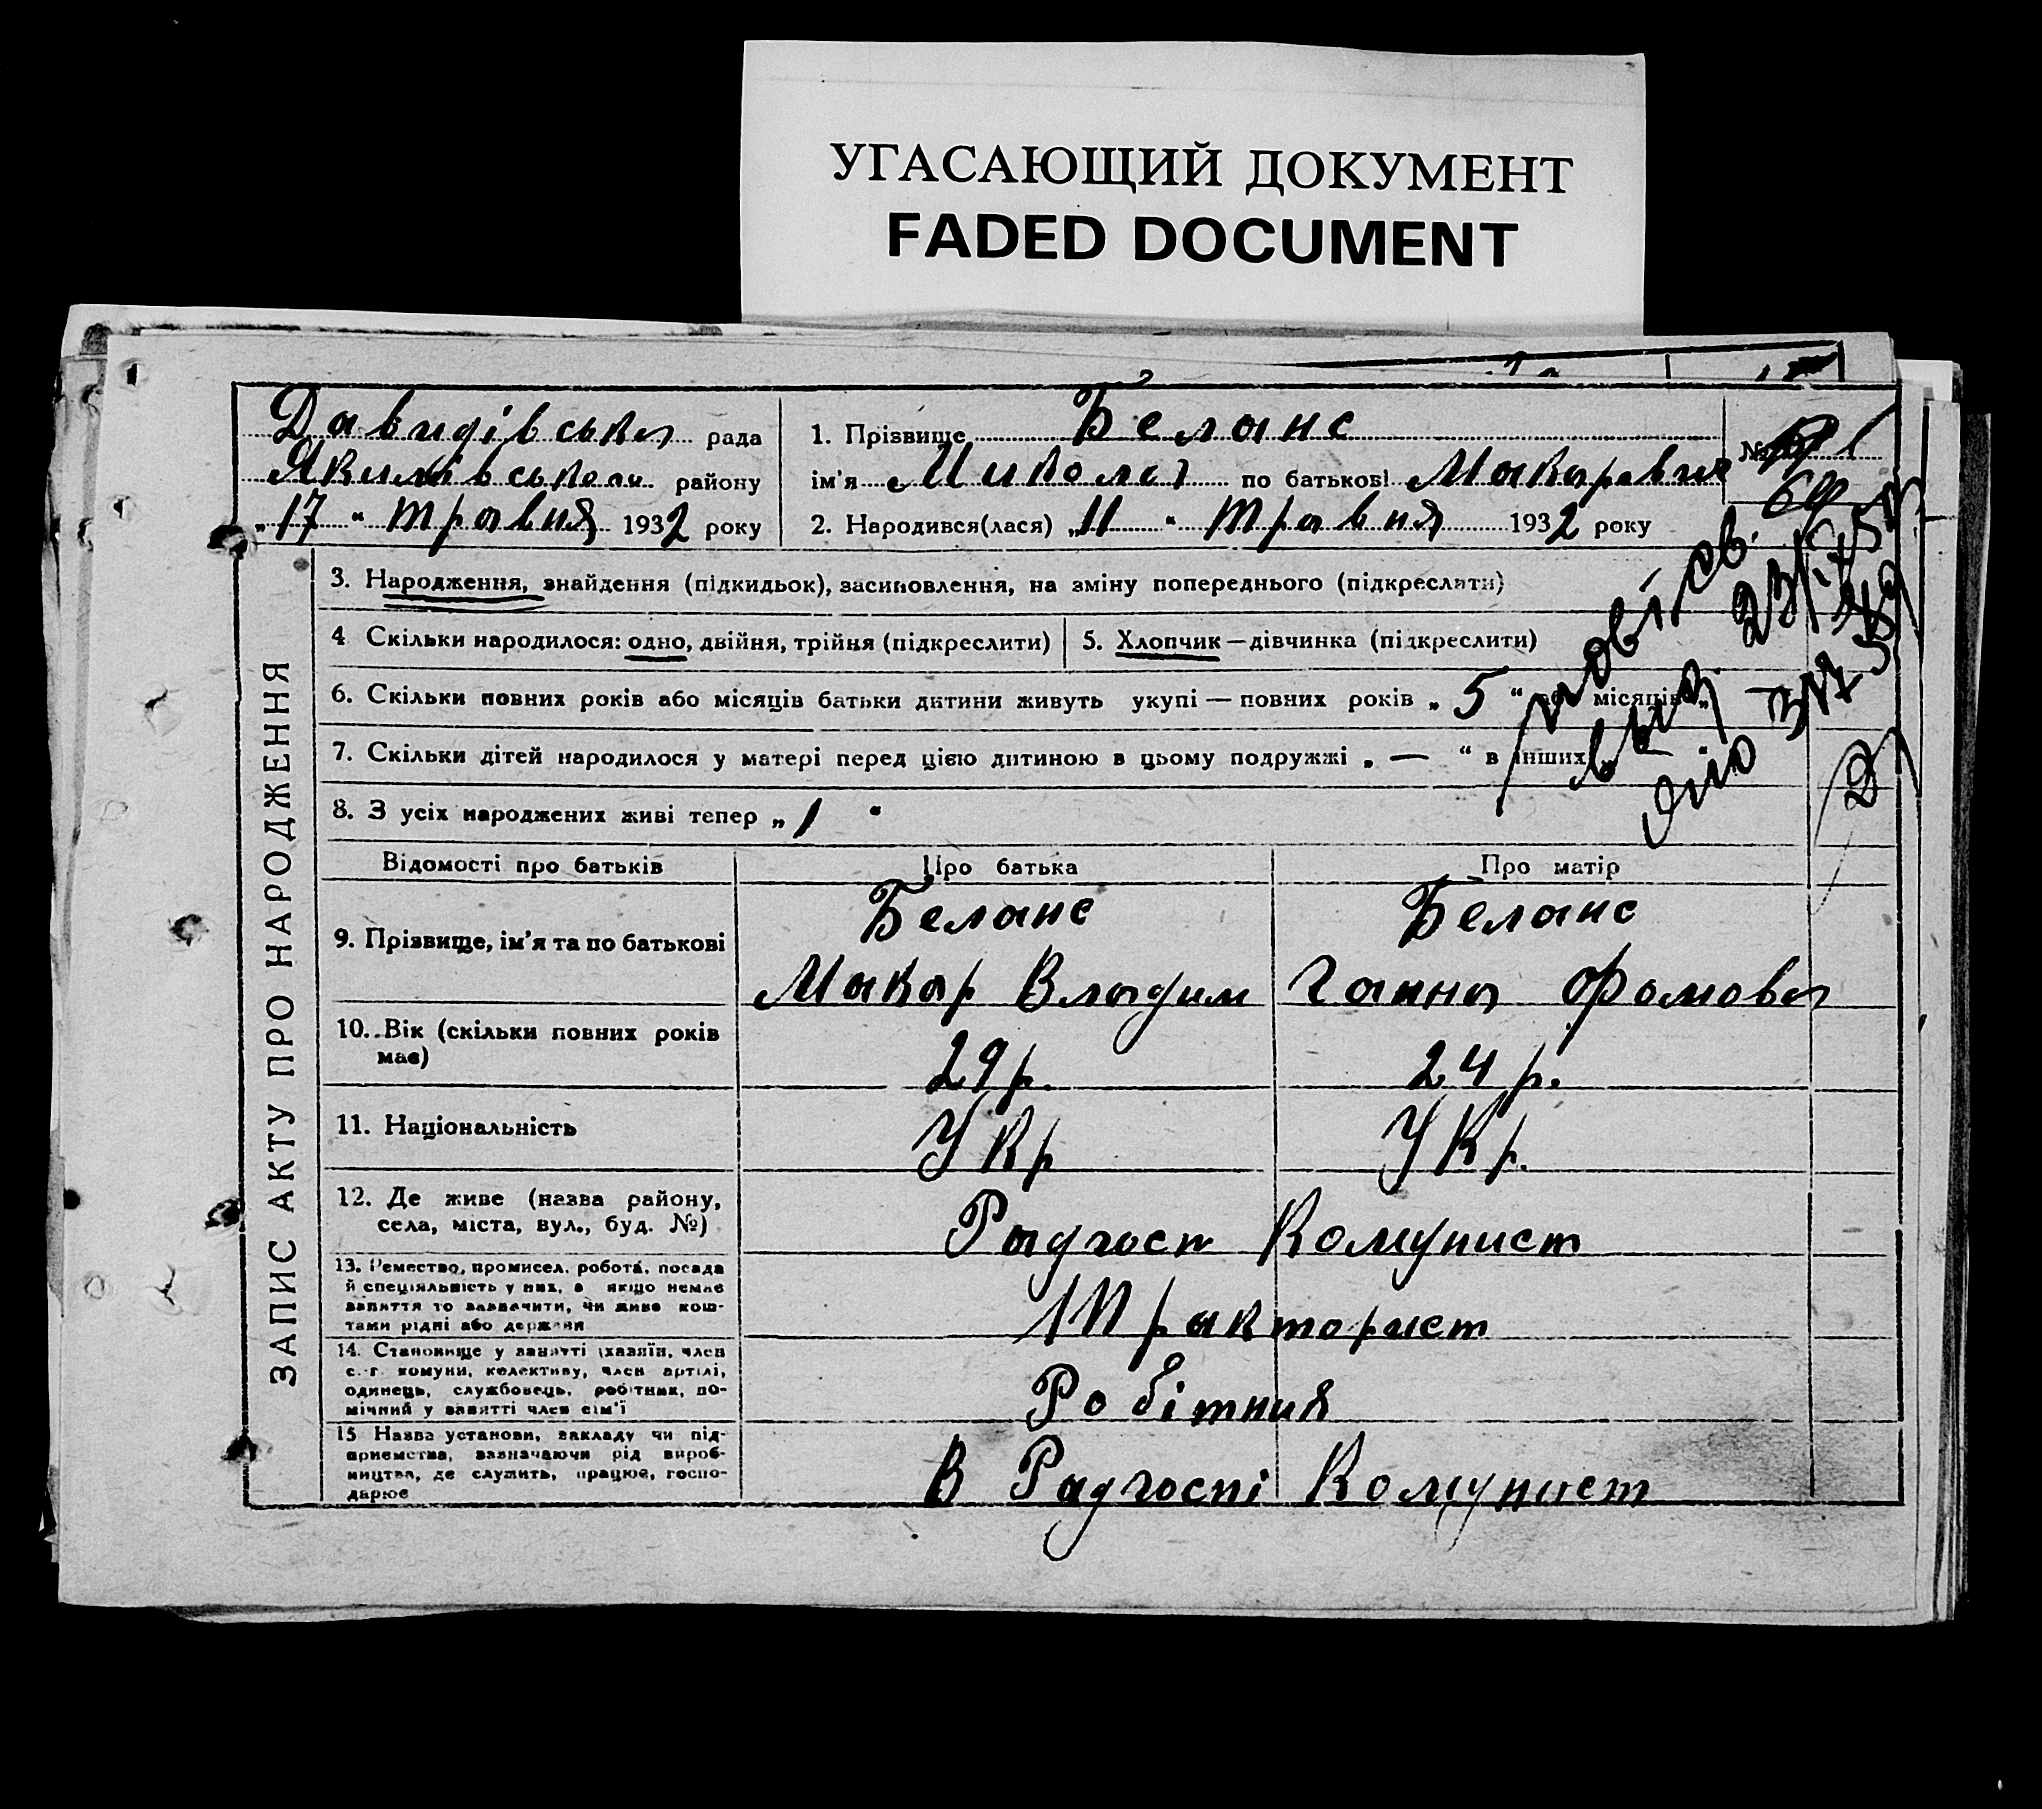 УГАСАЮЩИЙ ДОКУМЕНТ
FADED DOCUMENT
Давидівська рада
Якимівського району
„17“ травня 1932 року
1. Прізвище Беланс
ім'я Микола по батькові Макарович
2. Народився(лася) „11“ травня 1932 року
№
69
ЗАПИС АКТУ ПРО НАРОДЖЕННЯ
3. Народження, знайдення (підкидьок), засиновлення, на зміну попереднього (підкреслити)
4 Скільки народилося: одно, двійня, трійня (підкреслити)
5. Хлопчик — дівчинка (підкреслити)
6. Скільки повних років або місяців батьки дитини живуть укупі — повних років „5“ або місяців „
7. Скільки дітей народилося у матері перед цією дитиною в цьому подружжі „—“ в інших „—
8. З усіх народжених живі тепер „1“
Відомості про батьків
Про батька
Про матір
9. Прізвище, ім'я та по батькові
Беланс
Макар Владим
Беланс
Ганна Фомовна
10. Вік (скільки повних років має)
29 р.
24 р.
11. Національність
Укр
Укр.
12. Де живе (назва району,
села, міста, вул., буд. №)
Радгосп Комунист
13. Ремество, промисел, робота, посада
й спеціяльність у них, а якщо немає
заняття то зазначити, чи живе кош-
тами рідні або держави
Тракторист
14. Становище у занятті (хазяїн, член
с.-г. комуни, колективу, член артілі,
одинець, службовець, робітник, по-
мічний у занятті член сім'ї
Робітник
15 Назва установи, закладу чи під-
приємства, зазначаючи рід вироб-
ництва, де служить, працює, госпо-
дарює
В Радгоспі Комунист